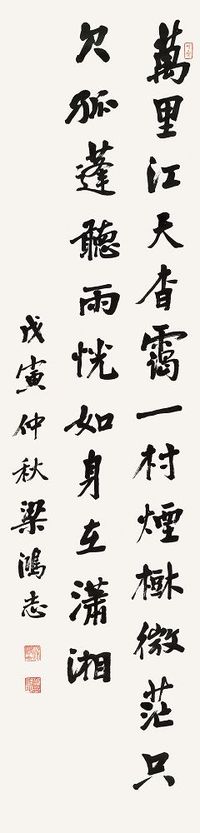 萬里江天杳靄一村煙樹微茫只
欠孤蓬聽雨恍如身在瀟湘
戊寅仲秋梁鴻志